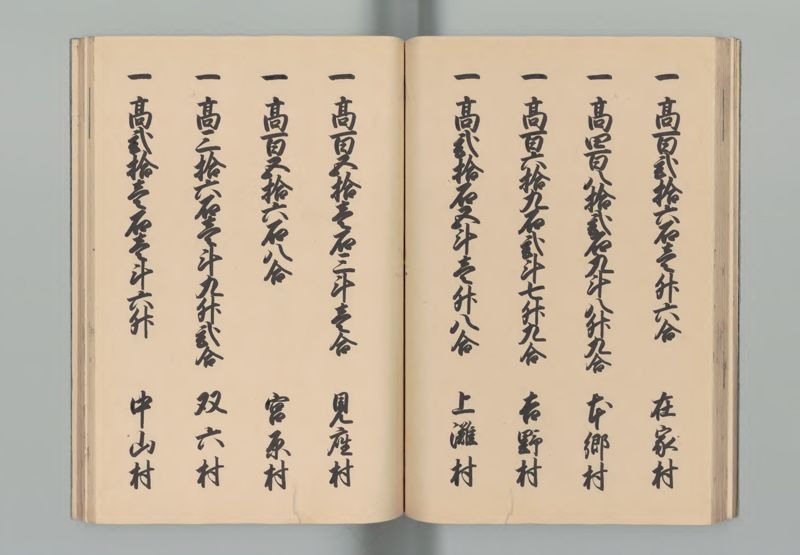 一 高百弐拾六石壱升六合 在家村
一 高四百八拾弐石九斗八升九合 本郷村
一 高百六拾九石弐斗七升九合 吉野村
一 高弐拾石五斗壱升八合 上灘村
一 高百五拾壱石三斗壱合 見座村
一 高百五拾六石八合 宮原村
一 高三拾六石壱斗九升弐合 双六村
一 高弐拾壱石壱斗六升 中山村